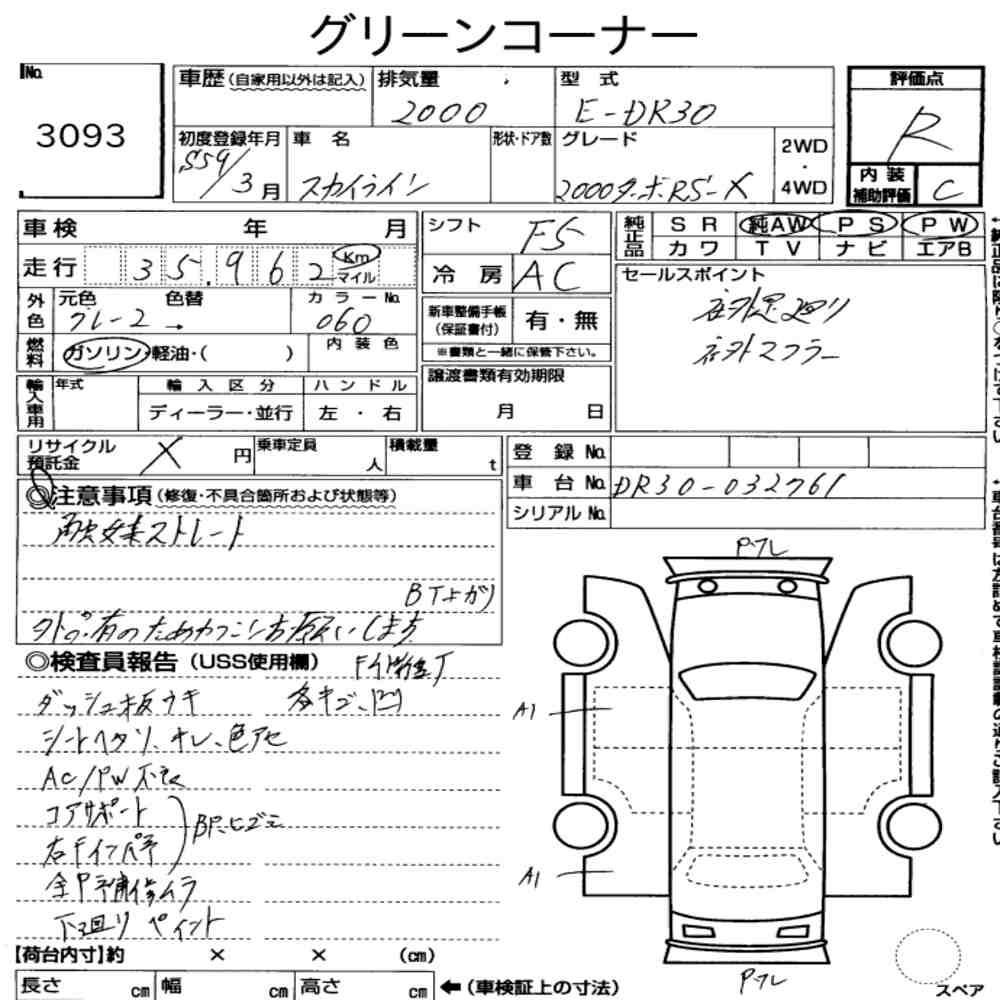 グリーンコーナー
No. 3093
車歴 (自家用以外は記入)
排気量 2000
型式 E-DR30
評価点 R
初度登録年月 S59/3月
車名 スカイライン
形状・ドア数
グレード 2000ターボRS-X
2WD・4WD
内装補助評価 C
車検 年 月
シフト F5
純正品 SR 純AW PS PW
カワ TV ナビ エアB
走行 35,962 Km マイル
冷房 AC
セールスポイント
社外足廻り
社外マフラー
外色 元色 グレー2→ 色替 カラーNo. 060
新車整備手帳(保証書付) 有・無
※書類と一緒に保管下さい。
燃料 ガソリン・軽油・( ) 内装色
譲渡書類有効期限 月 日
輸入車用 年式 輸入区分 ハンドル
ディーラー・並行 左・右
リサイクル預託金 X 円 乗車定員 人 積載量 t
登録No.
車台No. DR30-032761
シリアルNo.
◎注意事項 (修復・不具合箇所および状態等)
触媒ストレート
BT上がり
◎検査員報告 (USS使用欄)
ダッシュ板ウキ 各キズ、凹
シートヘタリ、キレ、色アセ
AC/PW不良
コアサポート
右Fインパネ
BP、ヒズミ
全P予補修ムラ
下廻り ペイント
P-フレ
A1
A1
P-フレ
【荷台内寸】約 × × (cm)
長さ cm 幅 cm 高さ cm
←(車検証上の寸法)
スペア